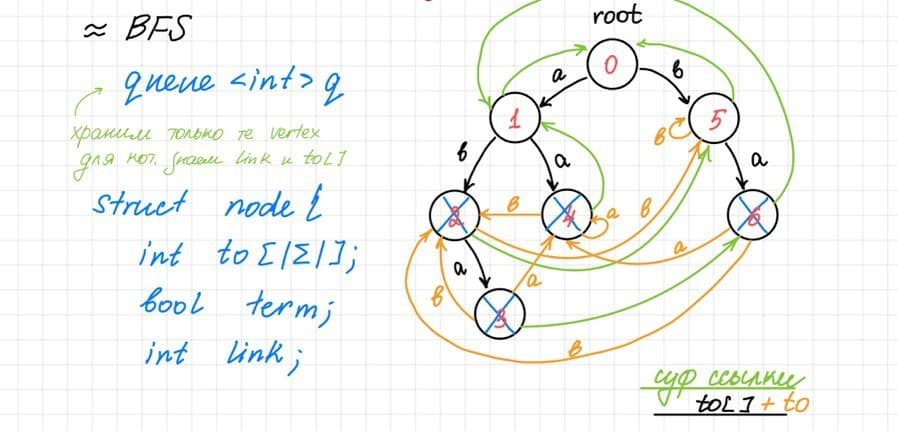 ≈ BFS
queue <int> q
храним только те vertex
для кот. знаем link и to[]
struct node {
int to[|Σ|];
bool term;
int link;
root
0
a
в
1
5
в
в
a
a
2
в
4
a
в
6
a
a
a
в
3
в
суф ссылки
to[] + to